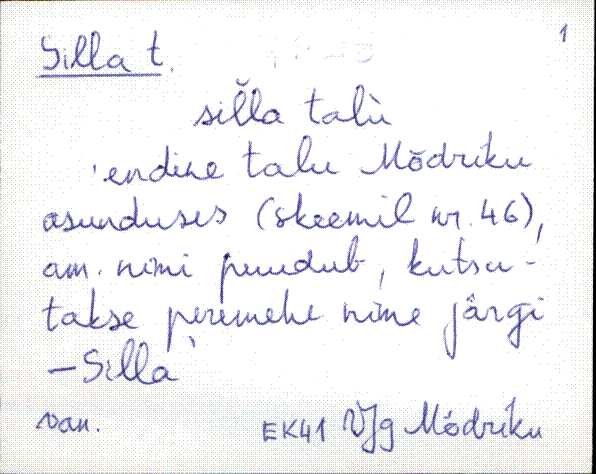 1
Silla t.
sil̆la talù
'endine talu Mõdriku
asunduses (skeemil nr. 46),
am. nimi puudub, kutsu-
takse peremehe nime järgi
– Silla
van. EK41 VJg Mõdriku